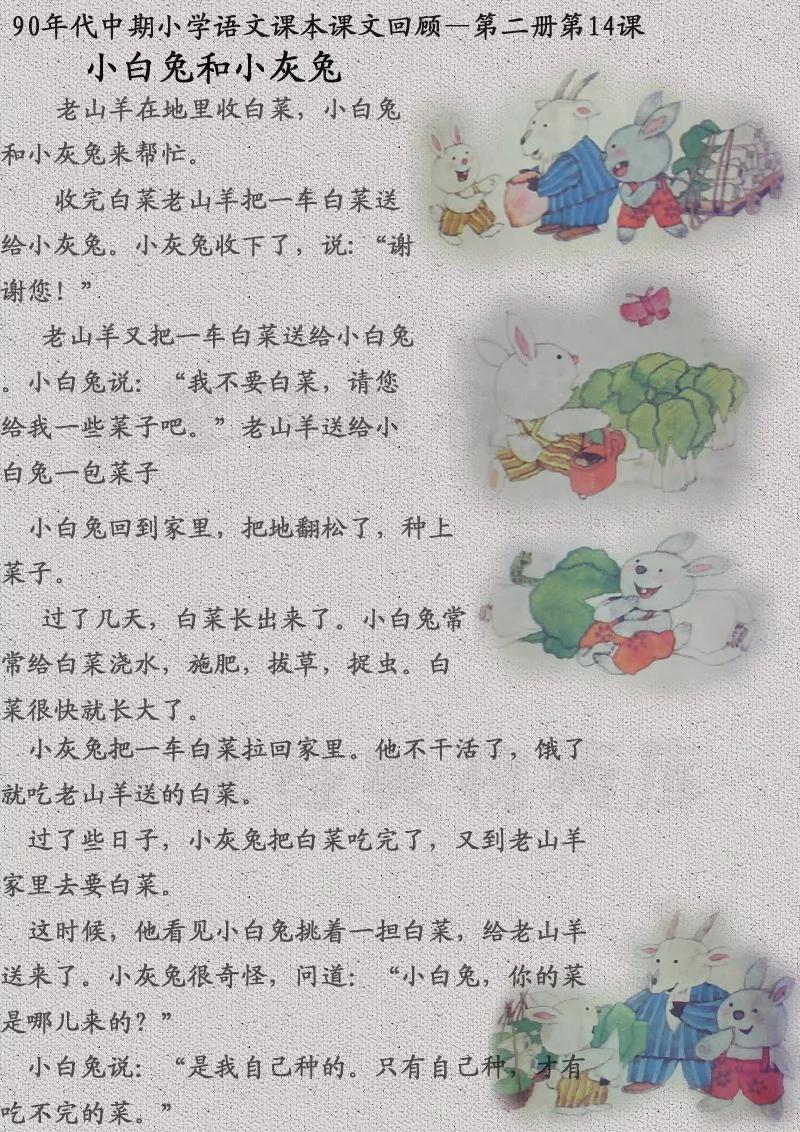 90年代中期小学语文课本课文回顾—第二册第14课
小白兔和小灰兔
老山羊在地里收白菜，小白兔
和小灰兔来帮忙。
收完白菜老山羊把一车白菜送
给小灰兔。小灰兔收下了，说：“谢
谢您！”
老山羊又把一车白菜送给小白兔
。小白兔说：“我不要白菜，请您
给我一些菜子吧。”老山羊送给小
白兔一包菜子
小白兔回到家里，把地翻松了，种上
菜子。
过了几天，白菜长出来了。小白兔常
常给白菜浇水，施肥，拔草，捉虫。白
菜很快就长大了。
小灰兔把一车白菜拉回家里。他不干活了，饿了
就吃老山羊送的白菜。
过了些日子，小灰兔把白菜吃完了，又到老山羊
家里去要白菜。
这时候，他看见小白兔挑着一担白菜，给老山羊
送来了。小灰兔很奇怪，问道：“小白兔，你的菜
是哪儿来的？”
小白兔说：“是我自己种的。只有自己种，才有
吃不完的菜。”